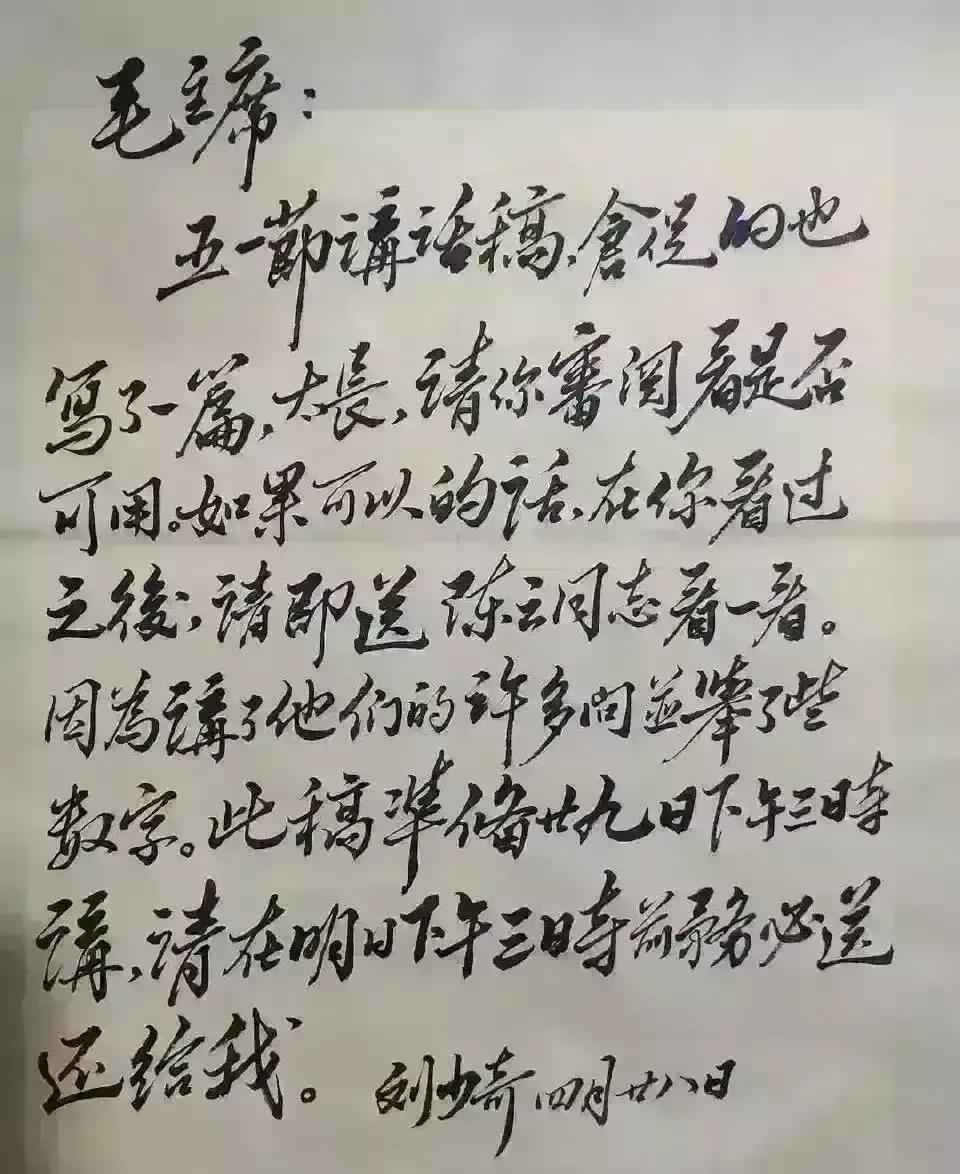 毛主席：
五一節講話稿，倉促的也
寫了一篇，太長，請你審阅看是否
可用。如果可以的話，在你看过
之後，請即送陈云同志看一看。
因為講了他们的許多问並舉了些
数字。此稿準备廿九日下午三时
講，請在明日下午三时前務必送
还给我。
刘少奇 四月廿八日